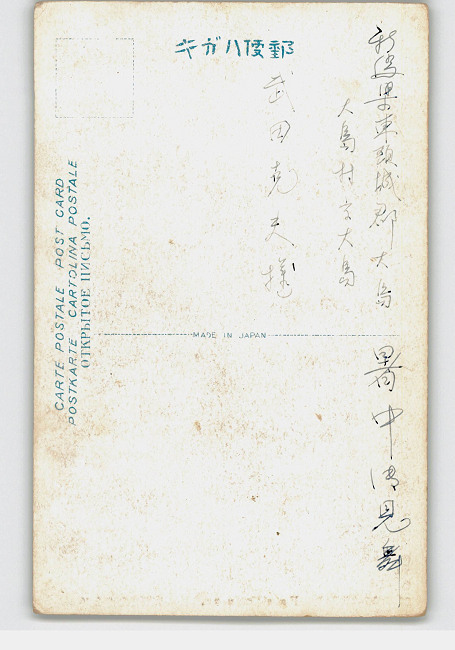 キガハ便郵
新潟県東頸城郡大島
大島村字大島
武田克夫様
暑中御見舞
MADE IN JAPAN
CARTE POSTALE POST CARD
POSTKARTE CARTOLINA POSTALE
ОТКРЫТОЕ ПИСЬМО.